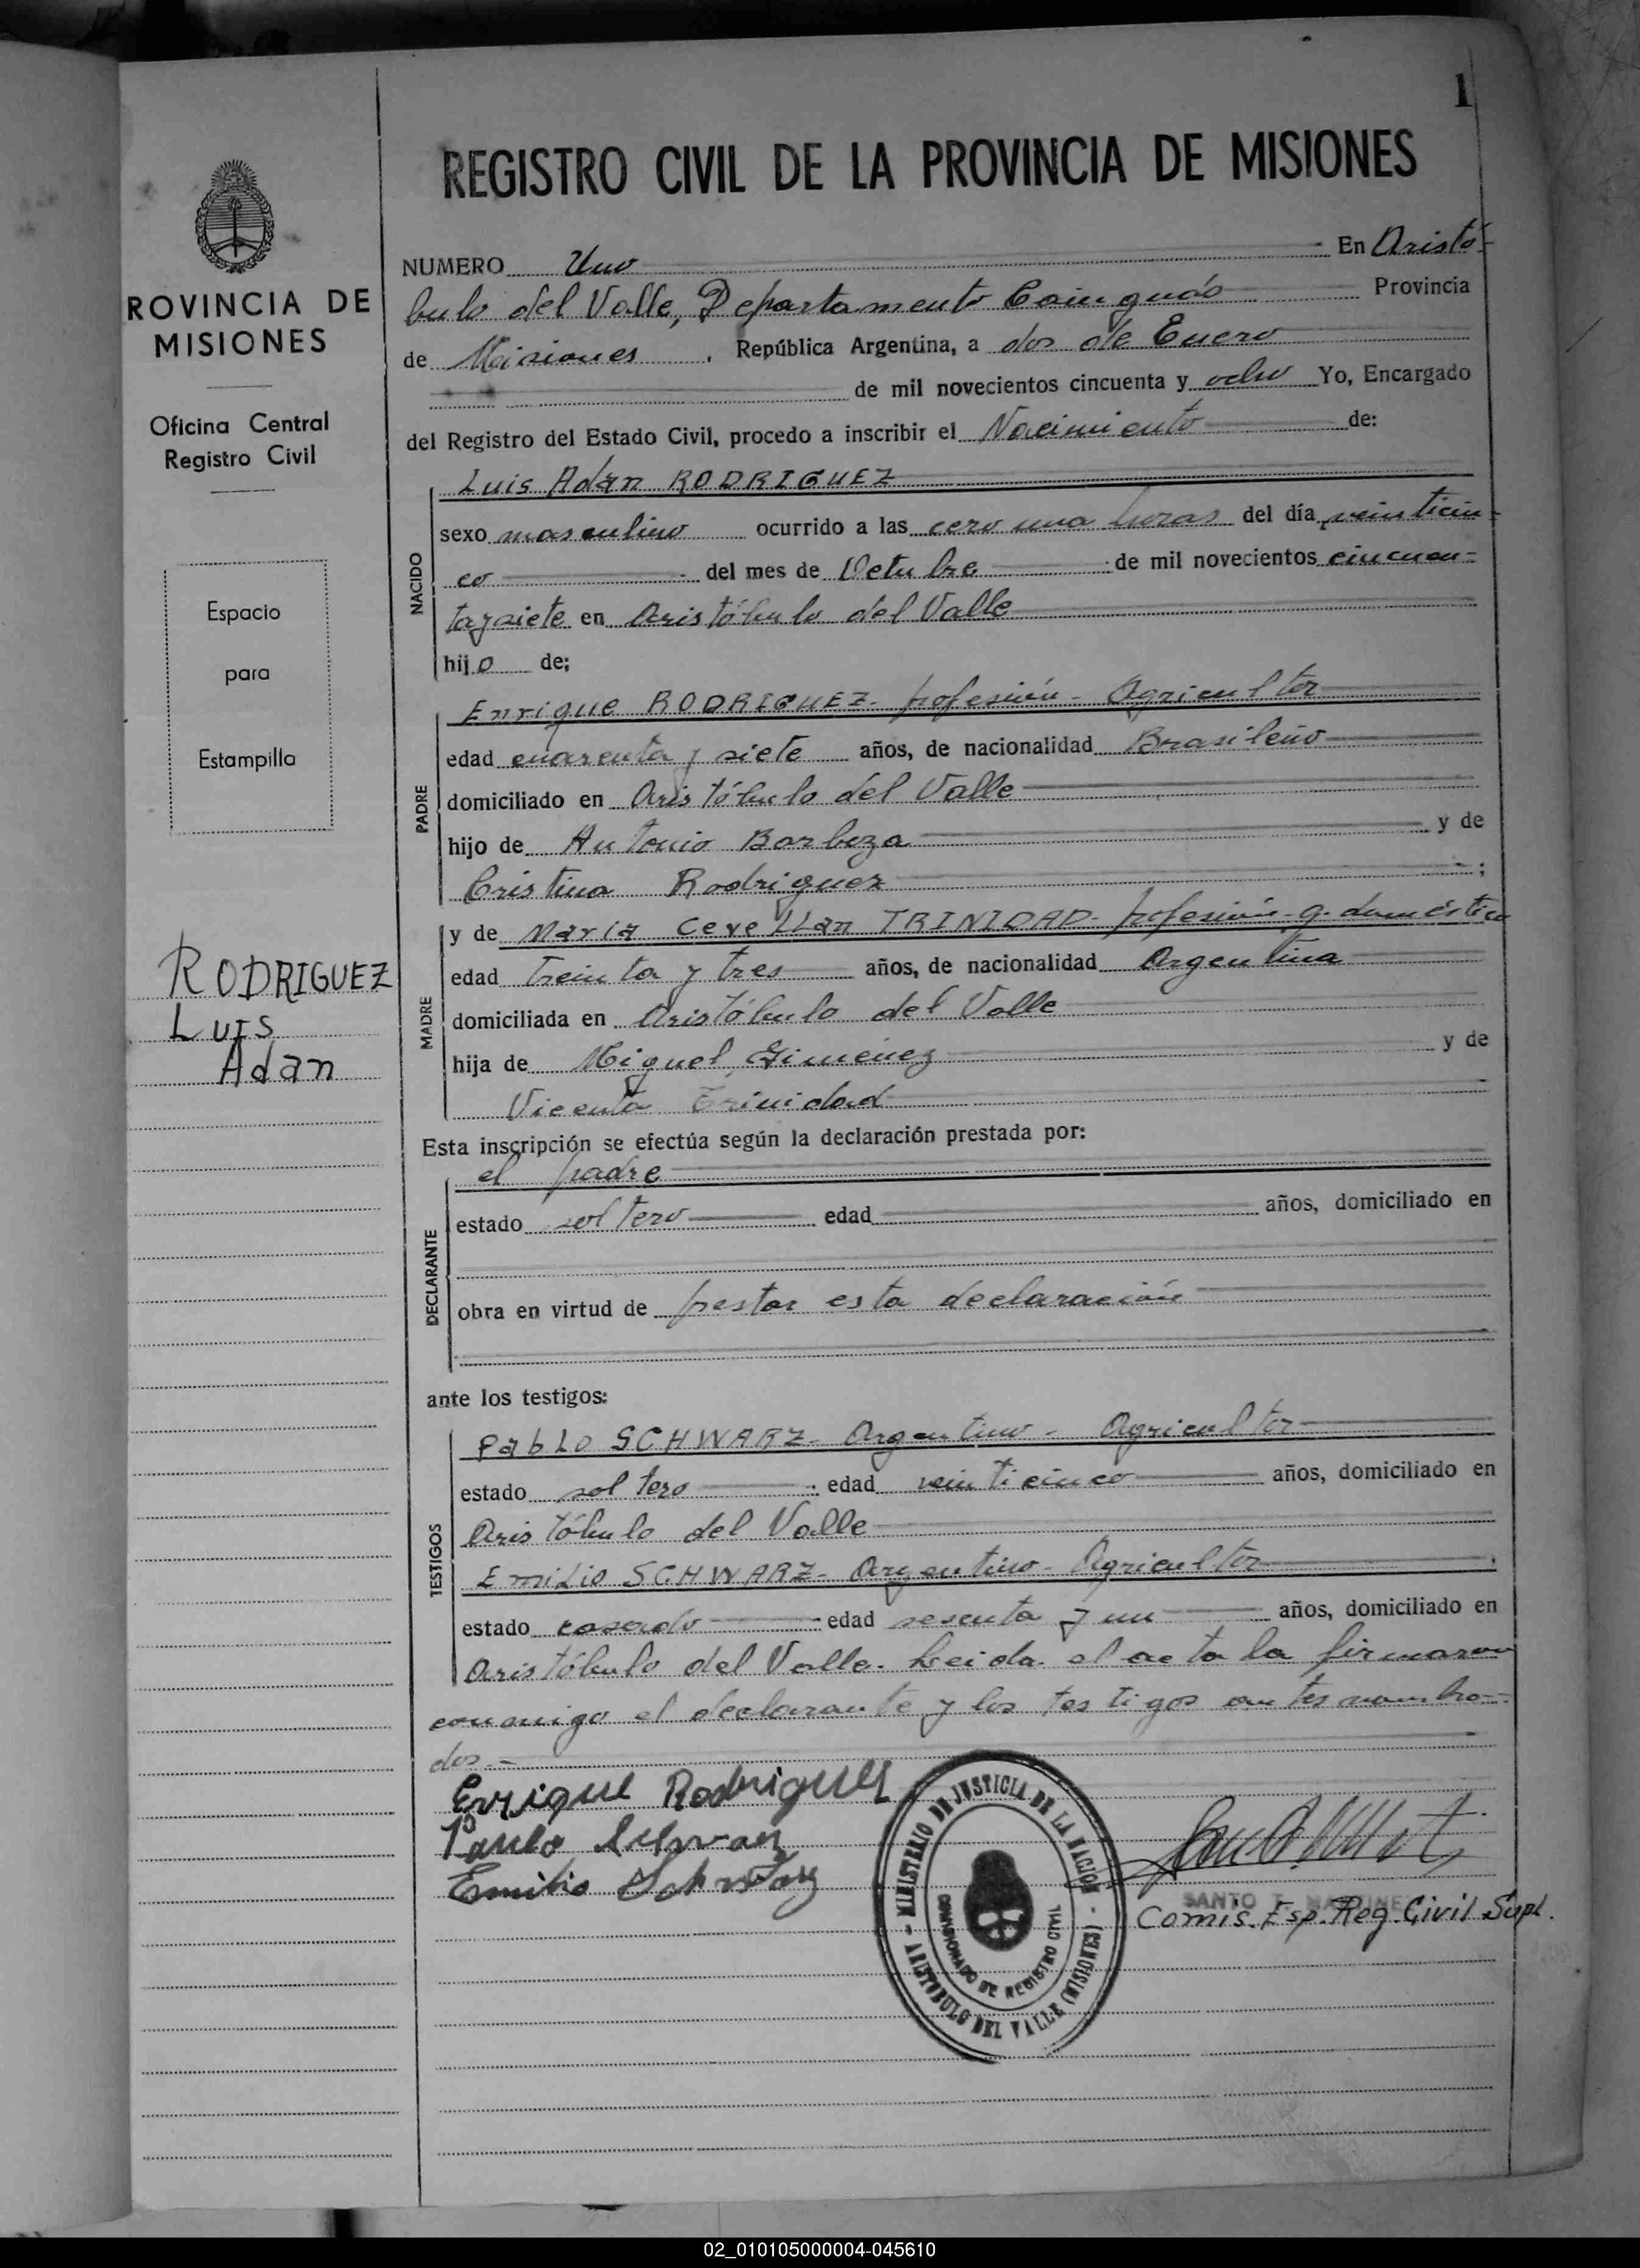 1
REGISTRO CIVIL DE LA PROVINCIA DE MISIONES
ROVINCIA DE
MISIONES
Oficina Central
Registro Civil
Espacio
para
Estampilla
RODRIGUEZ
Luis
Adan
NUMERO Uno En Aristó-
bulo del Valle, Departamento Cainguás Provincia
de Misiones. República Argentina, a dos de Enero
de mil novecientos cincuenta y ocho Yo, Encargado
del Registro del Estado Civil, procedo a inscribir el Nacimiento de:
NACIDO
Luis Adan RODRIGUEZ
sexo masculino ocurrido a las cero una horas del día veinticin-
co del mes de Octubre de mil novecientos cincuen-
taysiete en Aristóbulo del Valle
hijo de;
PADRE
Enrique RODRIGUEZ- profesión- Agricultor
edad cuarenta y siete años, de nacionalidad Brasileño
domiciliado en Aristóbulo del Valle
hijo de Antonio Barboza y de
Cristina Rodriguez ;
MADRE
y de Maria TRINIDAD- profesión- q. doméstico
edad treinta y tres años, de nacionalidad Argentina
domiciliada en Aristóbulo del Valle
hija de Miguel Gimenez y de
Vicenta Trinidad
Esta inscripción se efectúa según la declaración prestada por:
DECLARANTE
el padre
estado soltero edad años, domiciliado en
obra en virtud de prestar esta declaración
ante los testigos:
TESTIGOS
Pablo SCHWARZ- Argentino- Agricultor
estado soltero edad veinticinco años, domiciliado en
Aristóbulo del Valle
Emilio SCHWARZ- Argentino- Agricultor
estado casado edad sesenta y un años, domiciliado en
Aristóbulo del Valle. Leida el acta la firmaron
conmigo el declarante y los testigos antes nombra-
dos.=
Enrique Rodriguez
Emilio Schwarz
MINISTERIO DE JUSTICIA DE LA NACION - ARISTOBULO DEL VALLE (MISIONES) -
COMISIONADO DE REGISTRO CIVIL
SANTO T. MARTINEZ
Comis. Esp. Reg. Civil Supl.
02_010105000004-045610